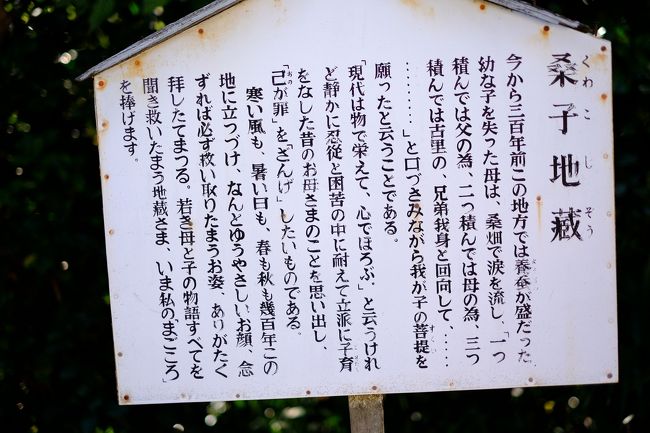 桑子地蔵
くわこじぞう
今から三百年前この地方では養蚕が盛だった
幼な子を失った母は、桑畑で涙を流し、「一つ
積んでは父の為、二つ積んでは母の為、三つ
積んでは古里の、兄弟我身と回向して、‥‥
‥‥‥‥」と口づさみながら我が子の菩提を
願ったと云うことである。
「現代は物で栄えて、心でほろぶ」と云うけれ
ど静かに忍従と困苦の中に耐えて立派に子育
をなした昔のお母さまのことを思い出し、
「己が罪」を「さんげ」したいものである。
寒い風も、暑い日も、春も秋も幾百年この
地に立つづけ、なんとゆうやさしいお顔、念
ずれば必ず救い取りたまうお姿、ありがたく
拝したてまつる。若き母と子の物語すべてを
聞き救いたまう地蔵さま、いま私の「まごころ」
を捧げます。